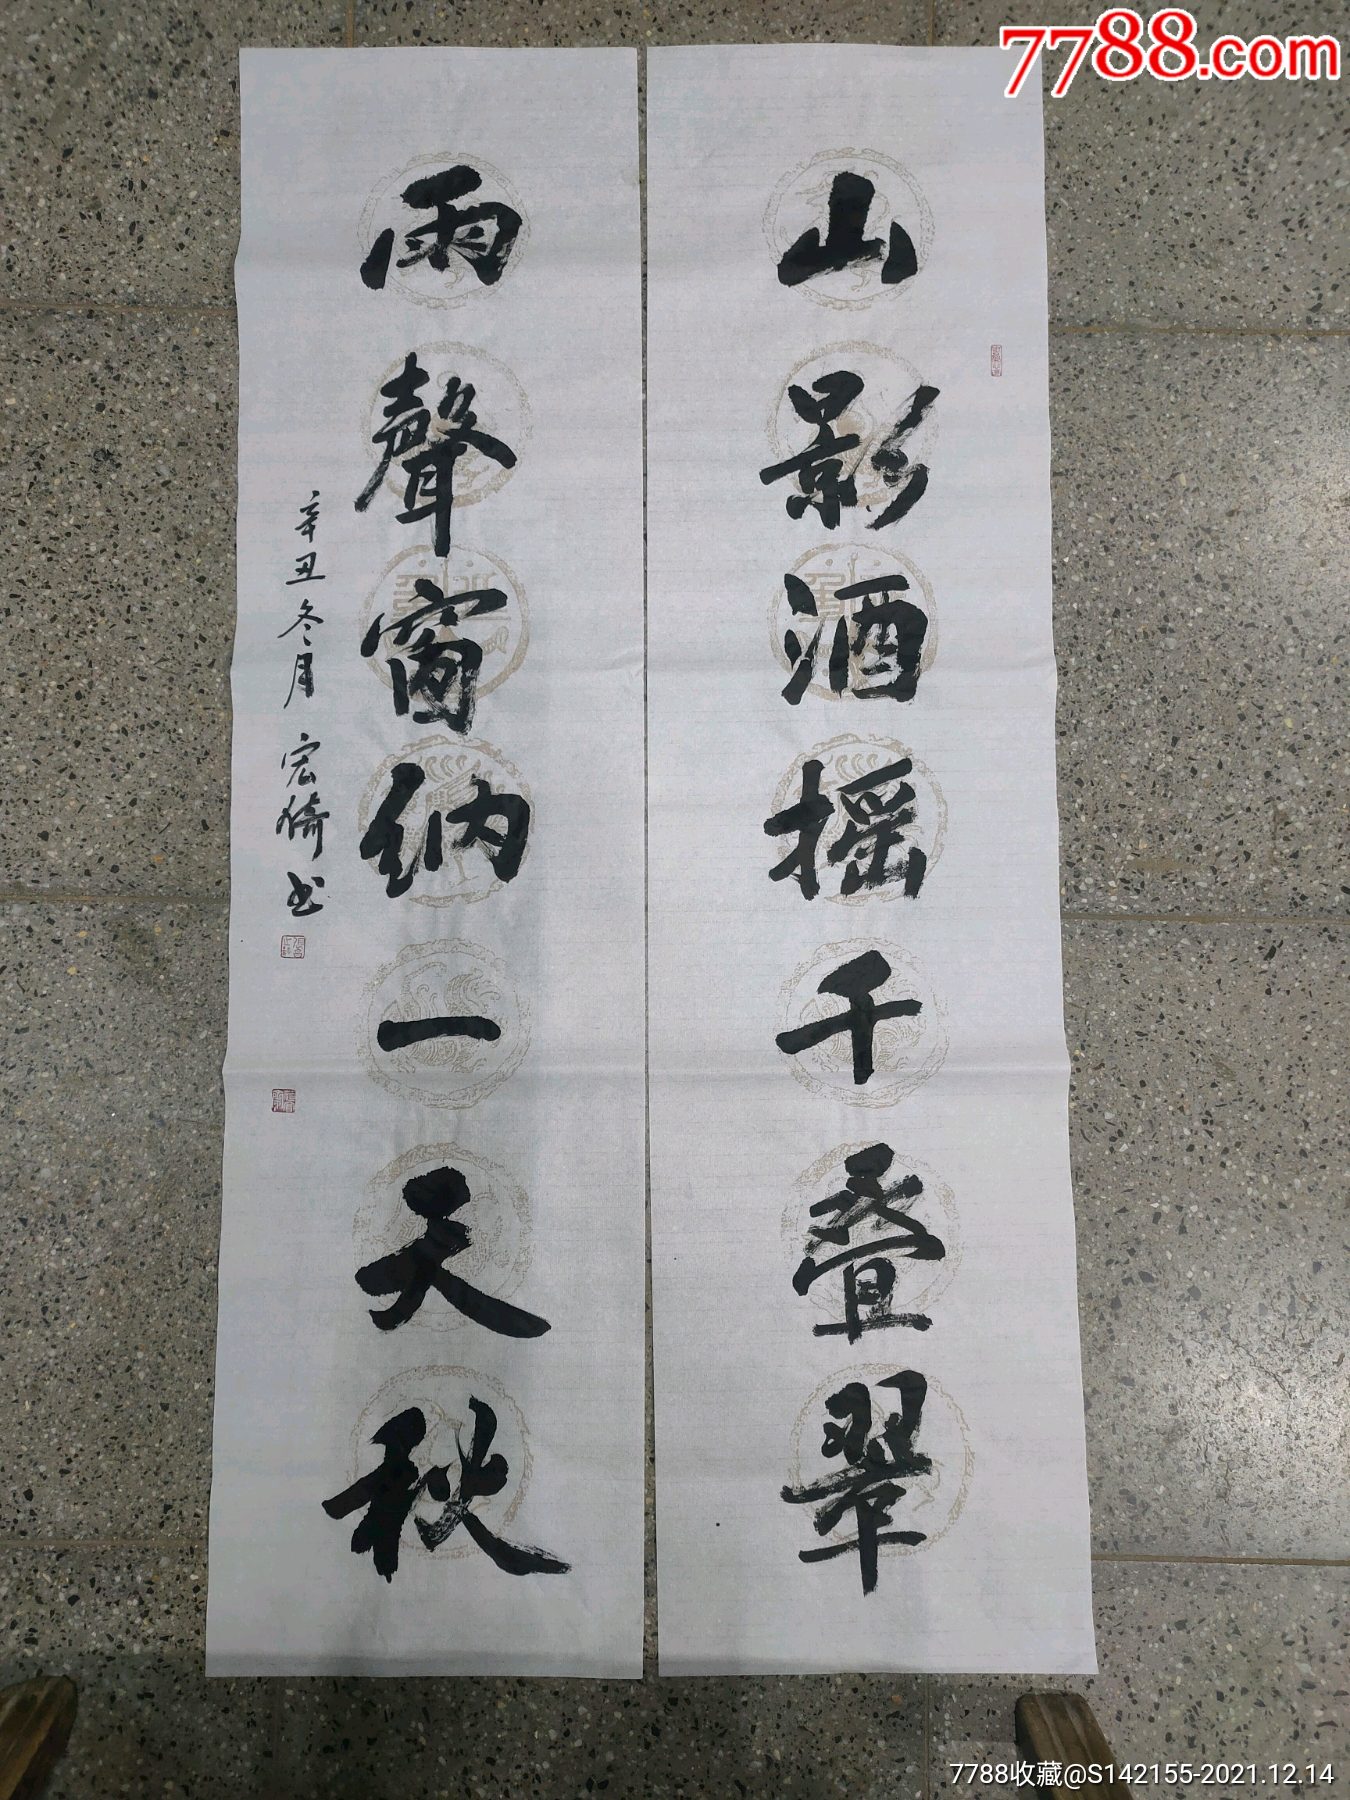 7788.com
山影酒摇千叠翠
雨聲窗纳一天秋
辛丑冬月 宏绮书
7788收藏@S142155-2021.12.14